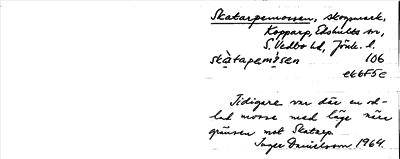 Skatarpamossen, skogsmark,
Kopparp, Edshults sn,
S. Vedbo hd, Jönk. l.
skàtapamósen 106
ek6F5e
Tidigare var där en od-
lad mosse med läge nära
gränsen mot Skatarp.
Inger Danielsson 1964.